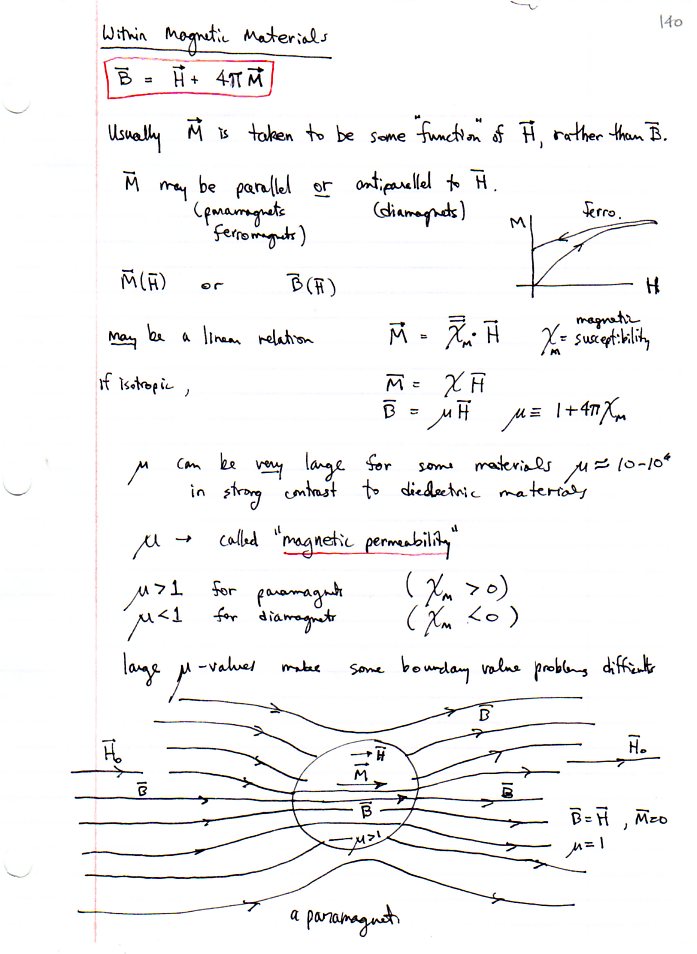 140
Within Magnetic Materials
B⃗ = H⃗ + 4π M⃗
Usually M⃗ is taken to be some "function" of H⃗, rather than B⃗.
M⃗ may be parallel or antiparallel to H⃗.
(paramagnets (diamagnets)
ferromagnets)
M ferro.
H
M⃗(H⃗) or B⃗(H⃗)
may be a linear relation M⃗ = χ̿_M · H⃗ χ_M = magnetic susceptibility
if isotropic, M⃗ = χ H⃗
B⃗ = μ H⃗ μ ≡ 1 + 4π χ_M
μ can be very large for some materials μ ≈ 10-10⁴
in strong contrast to dieelectric materials
μ → called "magnetic permeability"
μ > 1 for paramagnets (χ_M > 0)
μ < 1 for diamagnets (χ_M < 0)
large μ-values make some boundary value problems difficult
B⃗
H⃗₀ → H⃗ H⃗₀
M⃗
B⃗ B⃗ B⃗
B⃗ = H⃗, M⃗ = 0
μ > 1 μ = 1
a paramagnet